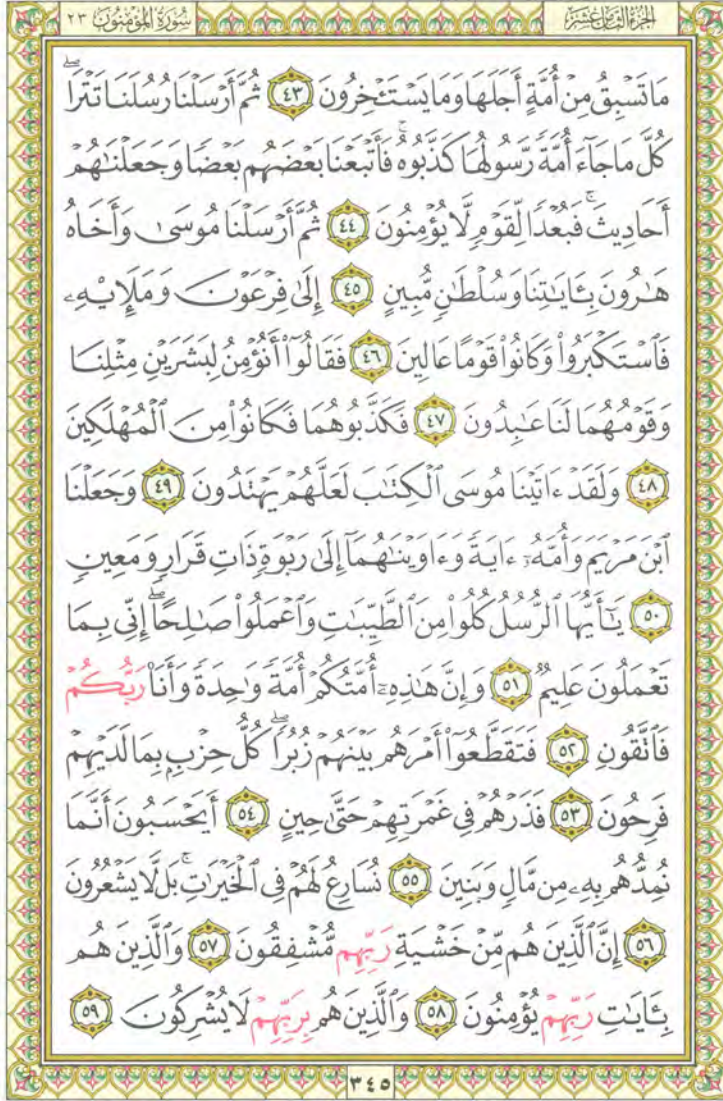 سُورَةُ المُؤْمِنُونَ ٢٣
الجُزْءُ الثَّامِنُ عَشَرَ
مَا تَسْبِقُ مِنْ أُمَّةٍ أَجَلَهَا وَمَا يَسْتَـْٔخِرُونَ ٤٣ ثُمَّ أَرْسَلْنَا رُسُلَنَا تَتْرَاۖ
كُلَّ مَا جَآءَ أُمَّةً رَّسُولُهَا كَذَّبُوهُۚ فَأَتْبَعْنَا بَعْضَهُم بَعْضًا وَجَعَلْنَٰهُمْ
أَحَادِيثَۚ فَبُعْدًا لِّقَوْمٍ لَّا يُؤْمِنُونَ ٤٤ ثُمَّ أَرْسَلْنَا مُوسَىٰ وَأَخَاهُ
هَٰرُونَ بِـَٔايَٰتِنَا وَسُلْطَٰنٍ مُّبِينٍ ٤٥ إِلَىٰ فِرْعَوْنَ وَمَلَإِيْهِۦ
فَٱسْتَكْبَرُوا۟ وَكَانُوا۟ قَوْمًا عَالِينَ ٤٦ فَقَالُوٓا۟ أَنُؤْمِنُ لِبَشَرَيْنِ مِثْلِنَا
وَقَوْمُهُمَا لَنَا عَٰبِدُونَ ٤٧ فَكَذَّبُوهُمَا فَكَانُوا۟ مِنَ ٱلْمُهْلَكِينَ
٤٨ وَلَقَدْ ءَاتَيْنَا مُوسَى ٱلْكِتَٰبَ لَعَلَّهُمْ يَهْتَدُونَ ٤٩ وَجَعَلْنَا
ٱبْنَ مَرْيَمَ وَأُمَّهُۥٓ ءَايَةً وَءَاوَيْنَٰهُمَآ إِلَىٰ رَبْوَةٍ ذَاتِ قَرَارٍ وَمَعِينٍ
٥٠ يَٰٓأَيُّهَا ٱلرُّسُلُ كُلُوا۟ مِنَ ٱلطَّيِّبَٰتِ وَٱعْمَلُوا۟ صَٰلِحًاۖ إِنِّى بِمَا
تَعْمَلُونَ عَلِيمٌ ٥١ وَإِنَّ هَٰذِهِۦٓ أُمَّتُكُمْ أُمَّةً وَٰحِدَةً وَأَنَا۠ رَبُّكُمْ
فَٱتَّقُونِ ٥٢ فَتَقَطَّعُوٓا۟ أَمْرَهُم بَيْنَهُمْ زُبُرًاۖ كُلُّ حِزْبٍۭ بِمَا لَدَيْهِمْ
فَرِحُونَ ٥٣ فَذَرْهُمْ فِى غَمْرَتِهِمْ حَتَّىٰ حِينٍ ٥٤ أَيَحْسَبُونَ أَنَّمَا
نُمِدُّهُم بِهِۦ مِن مَّالٍ وَبَنِينَ ٥٥ نُسَارِعُ لَهُمْ فِى ٱلْخَيْرَٰتِۚ بَل لَّا يَشْعُرُونَ
٥٦ إِنَّ ٱلَّذِينَ هُم مِّنْ خَشْيَةِ رَبِّهِم مُّشْفِقُونَ ٥٧ وَٱلَّذِينَ هُم
بِـَٔايَٰتِ رَبِّهِمْ يُؤْمِنُونَ ٥٨ وَٱلَّذِينَ هُم بِرَبِّهِمْ لَا يُشْرِكُونَ ٥٩
٣٤٥